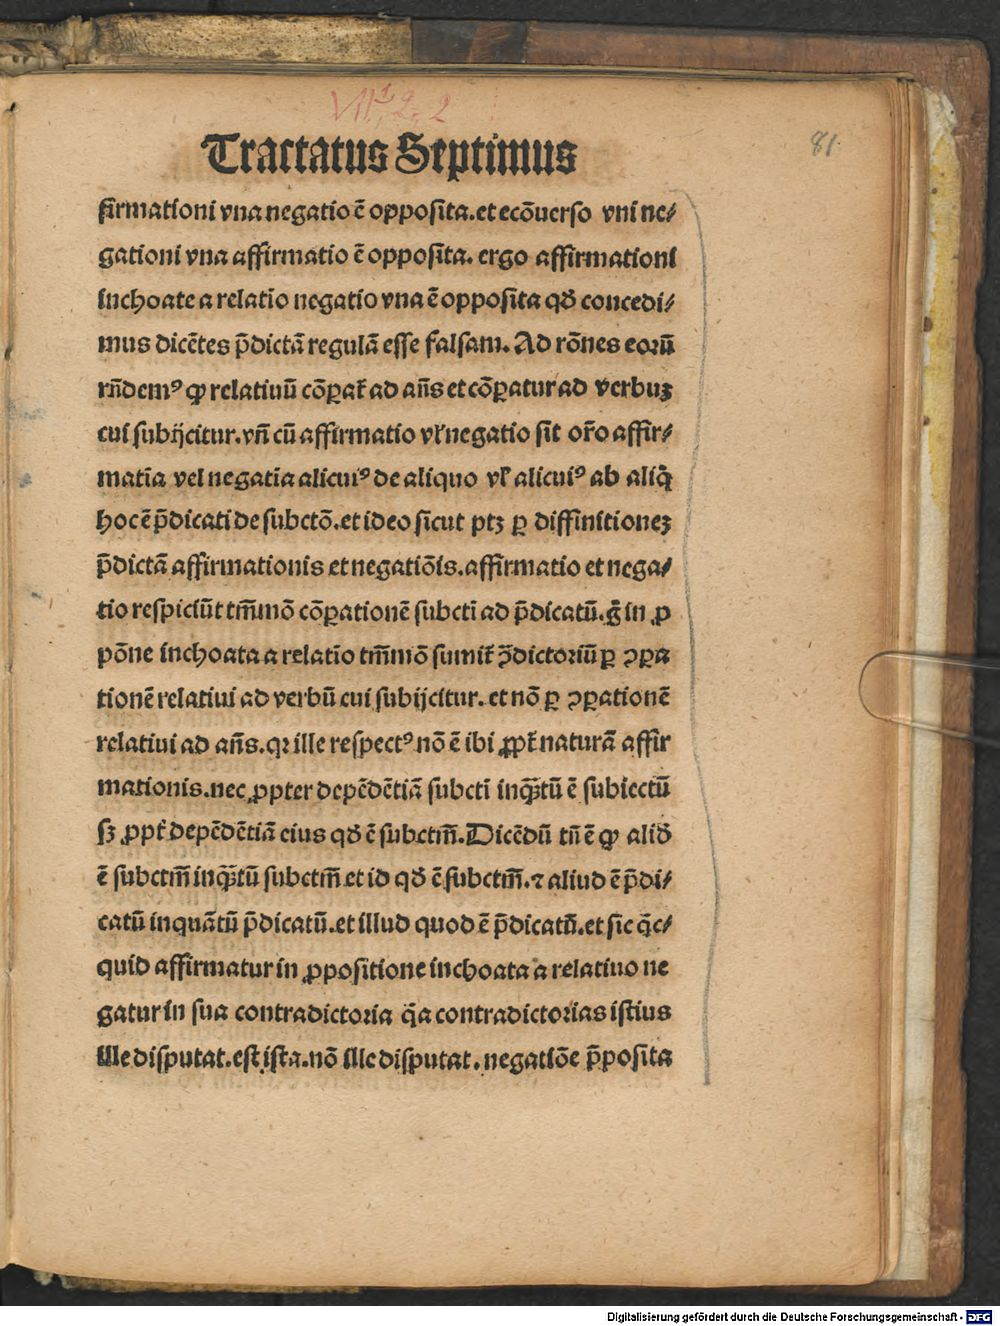 VII 1, 2, 2
81.
Tractatus Septimus
firmationi vna negatio ē opposita. et ecōuerso vni ne⸗
gationi vna affirmatio ē opposita. ergo affirmationi
inchoate a relatio negatio vna ē opposita qđ concedi⸗
mus dicētes p̄dictā regulā esse falsam. Ad rōnes eoꝛū
rn̄demꝰ ꝙ relatiuū cōꝑat̉ ad an̄s et cōꝑatur ad verbuꝫ
cui subijcitur. vn̄ cū affirmatio vl̉ negatio sit or̄o affir⸗
matīa vel negatīa alicuiꝰ de aliquo vl̉ alicuiꝰ ab aliq̊
hoc ē p̄dicati de subctō. et ideo sicut ptꝫ ꝑ diffinitioneꝫ
p̄dictā affirmationis et negatiōis. affirmatio et nega⸗
tio respiciūt tm̄mō cōꝑationē subcti ad p̄dicatū. g̊ in ꝓ
pōne inchoata a relatīo tm̄mō sumit̉ ꝯ̄dictoriū ꝑ ꝯꝑa
tionē relatiui ad verbū cui subijcitur. et nō ꝑ ꝯꝑationē
relatiui ad an̄s. qꝛ ille respectꝰ nō ē ibi ꝓpt̉ naturā affir
mationis. nec ꝓpter depēdētiā subcti inqꝫtū ē subiectū
sꝫ ꝓpt̉ depēdētiā eius qđ ē subctm̄. Dicēdū tn̄ ē ꝙ aliđ
ē subctm̄ inqꝫtū subctm̄ et id qđ ē subctm̄. ⁊ aliud ē p̄di⸗
catū inquātū p̄dicatū. et illud quod ē p̄dicatū. et sic q̇c⸗
quid affirmatur in ꝓpositione inchoata a relatiuo ne
gatur in sua contradictoꝛia q̄a contradictoꝛias istius
ille disputat. est ista. nō ille disputat. negatiōe p̄posita
Digitalisierung gefördert durch die Deutsche Forschungsgemeinschaft - DFG